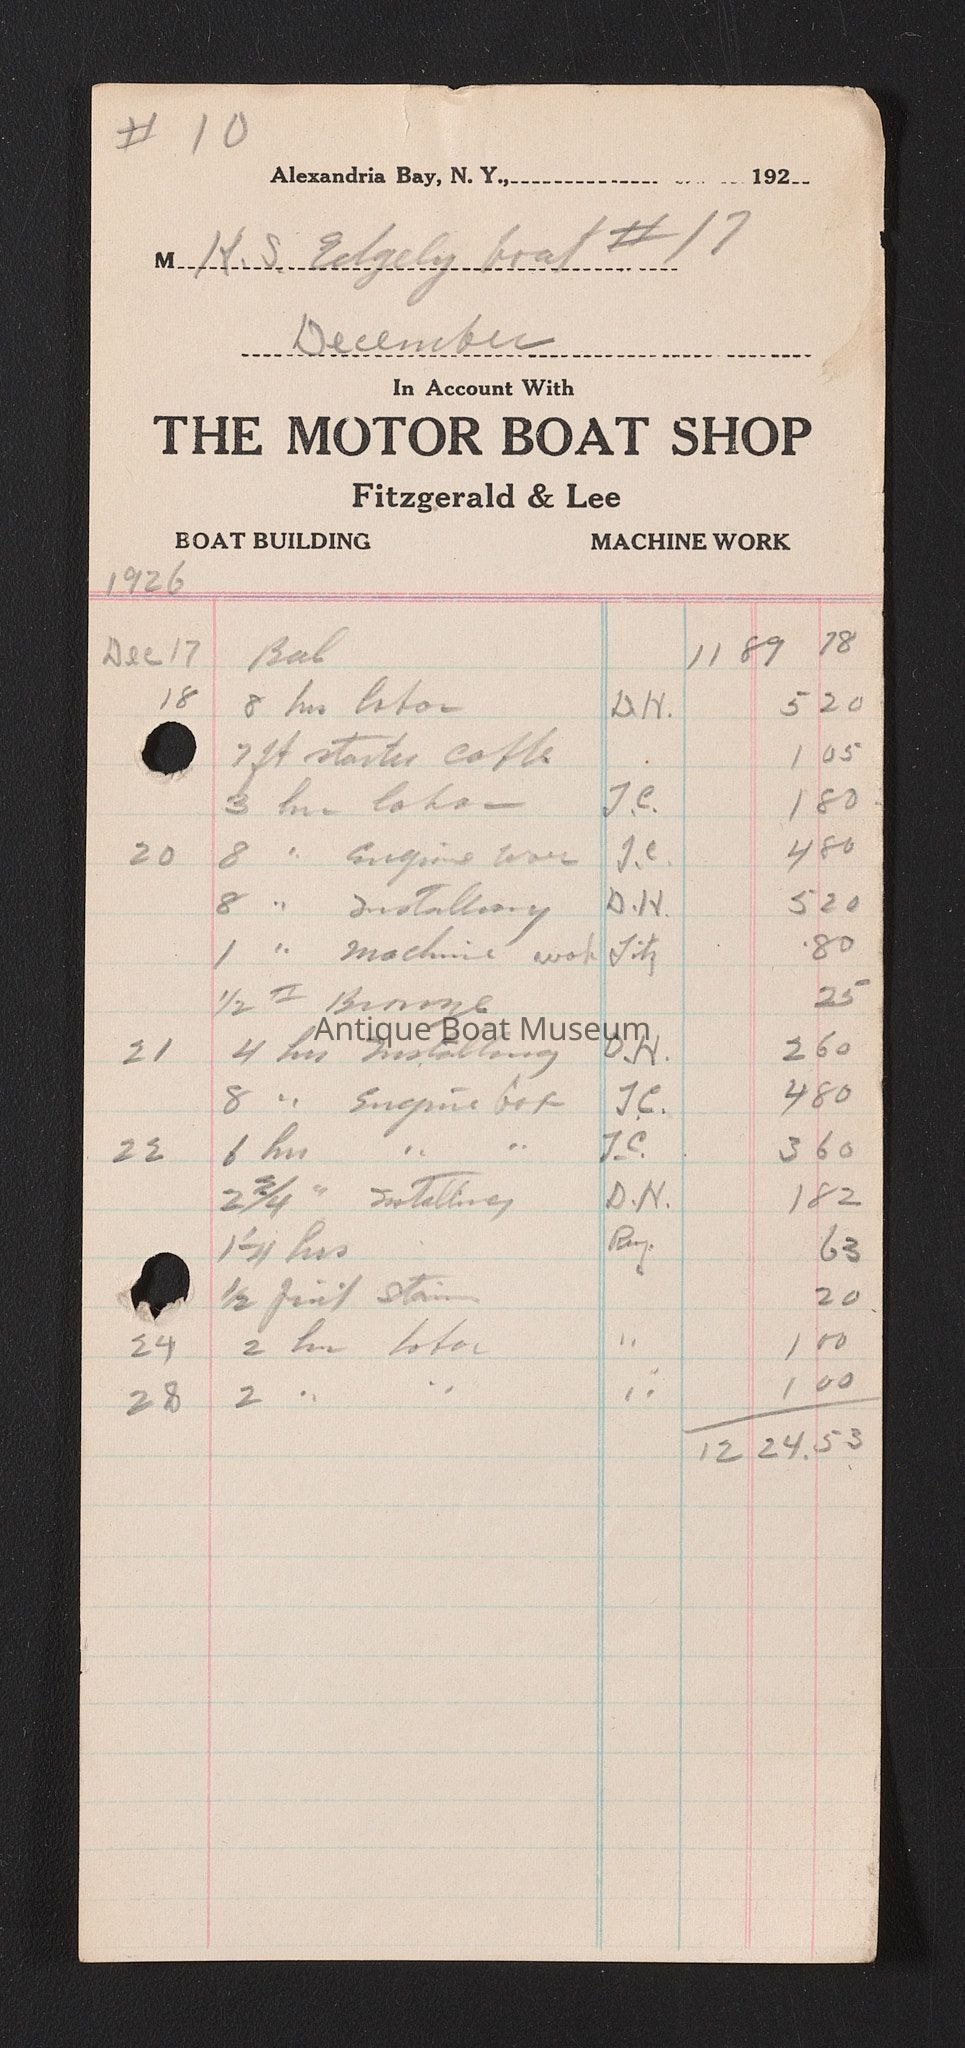 # 10
Alexandria Bay, N. Y., 192
M H. S. Edgely boat # 17
December
In Account With
THE MOTOR BOAT SHOP
Fitzgerald & Lee
BOAT BUILDING MACHINE WORK
1926
Dec 17 Bal 11 89 78
18 8 hrs labor D.H. 5 20
7 ft starter cable 1 05
3 hrs labor J.C. 1 80
20 8 " Engine box J.C. 4 80
8 " Installing D.H. 5 20
1 " machine work Fitz .80
1/2 Bronze 25
Antique Boat Museum
21 4 hrs Installing D.H. 2 60
8 " Engine box J.C. 4 80
22 6 hrs " " J.C. 3 60
2 3/4 " Installing D.H. 1 82
1 1/4 hrs Ray. 63
1/2 pint stain 20
24 2 hrs labor " 1 00
28 2 " " " 1 00
12 24.53